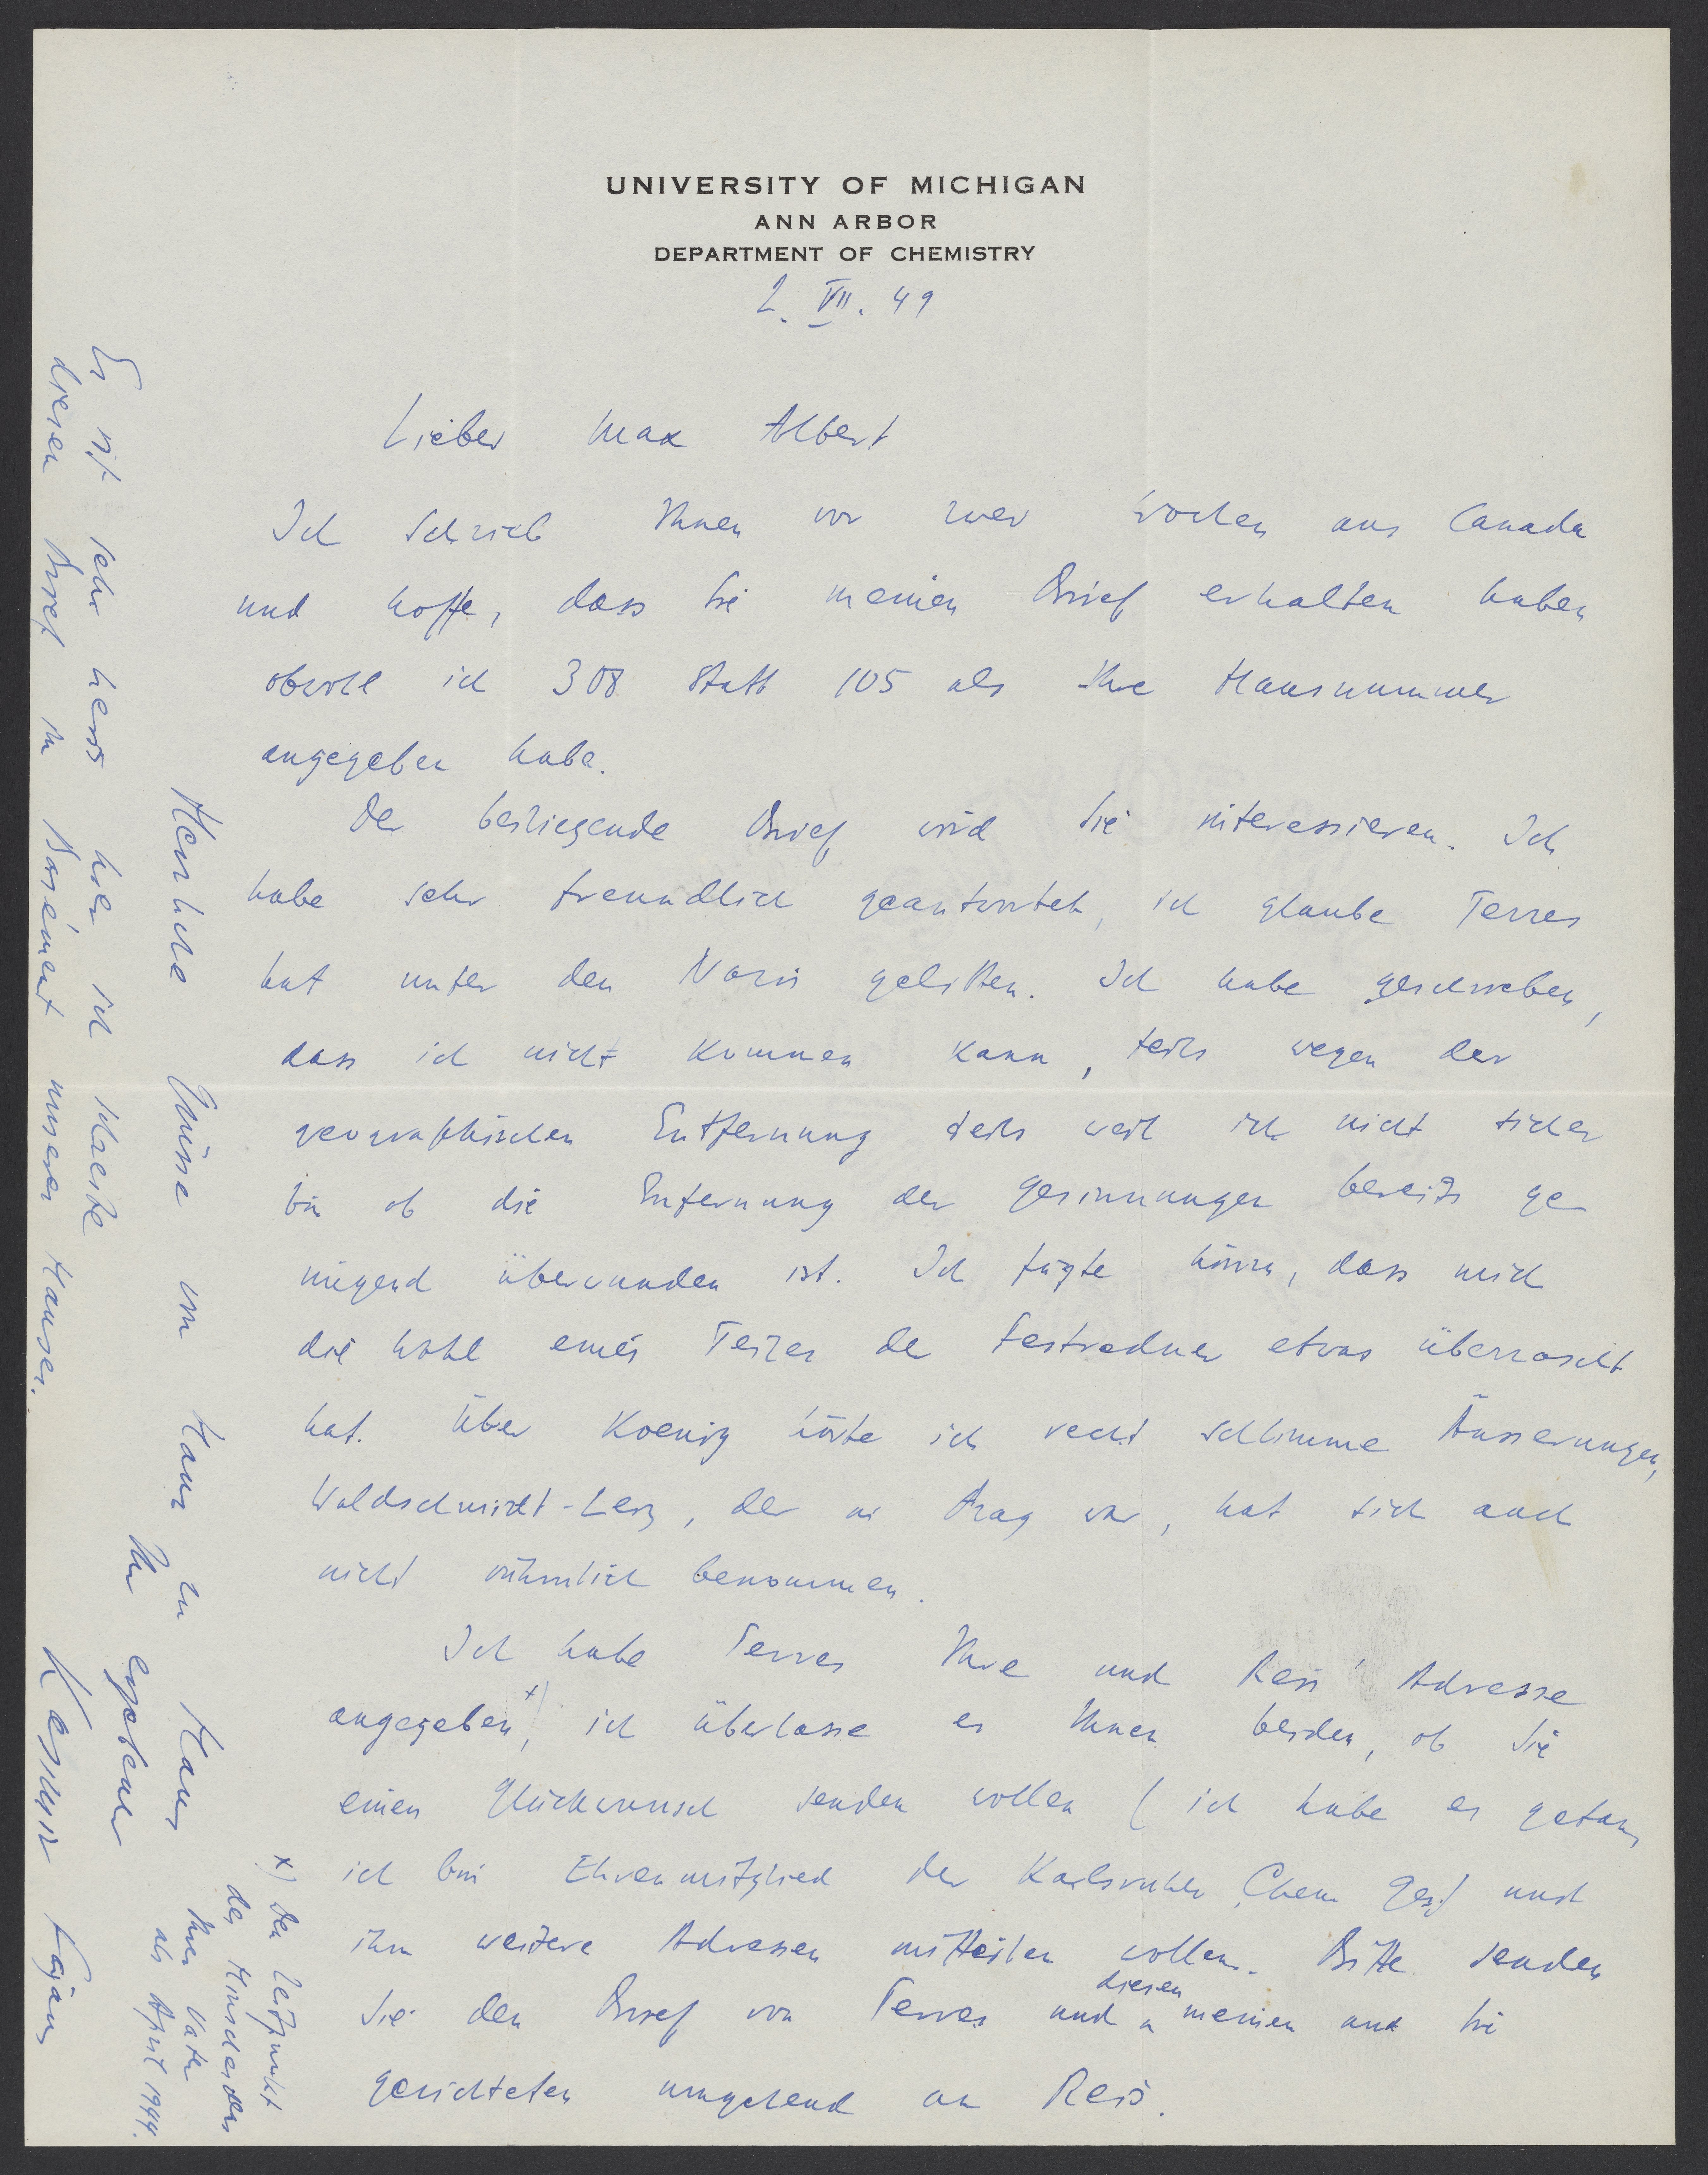 UNIVERSITY OF MICHIGAN
ANN ARBOR
DEPARTMENT OF CHEMISTRY
2. VII. 49
Lieber Max Albert
Ich schrieb Ihnen vor zwei Wochen aus Canada
und hoffe, dass Sie meinen Brief erhalten haben
obwohl ich 308 statt 105 als Ihre Hausnummer
angegeben habe.
Der beiliegende Brief wird Sie interessieren. Ich
habe sehr freundlich geantwortet, ich glaube Terres
hat unter den Nazis gelitten. Ich habe geschrieben,
dass ich nicht kommen kann, teils wegen der
geographischen Entfernung teils weil ich nicht sicher
bin ob die Entfernung der Gesinnungen bereits ge
nügend überwunden ist. Ich fügte hinzu, dass mich
die Wahl eines Teiles der Festredner etwas überrascht
hat. Über Koenig hörte ich recht schlimme Äusserungen,
Waldschmidt-Leiz, der in Prag war, hat sich auch
nicht rühmlich benommen.
Ich habe Terres Ihre und Reis' Adresse
angegeben x), ich überlasse es Ihnen beiden, ob Sie
einen Glückwunsch senden wollen (ich habe es getan,
ich bin Ehrenmitglied der Karlsruher Chem Ges) und
ihm weitere Adressen mitteilen wollen. Bitte senden
Sie den Brief von Terres und diesen meinen an Sie
gerichteten umgehend an Reis.
x) Den Zeitpunkt
des Hinscheidens
Ihres Vaters
als April 1944.
Herzliche Grüsse von Haus zu Haus
Ihr ergebener
Kasimir Fajans
Es ist sehr heiss hier ich schreibe
diesen Brief im Basement unseres Hauses.